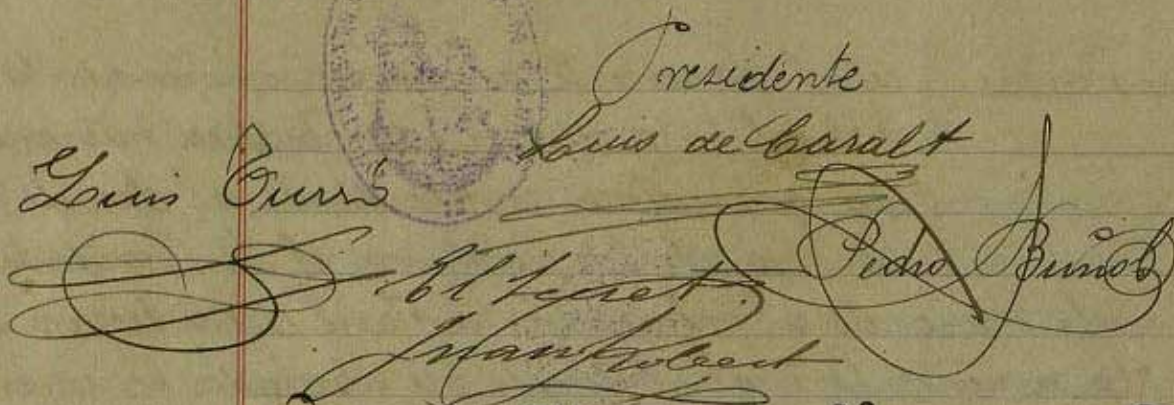 Presidente
Luis de Caralt
Luis Turró
Pedro Buñol
El Secret.
Juan Robert